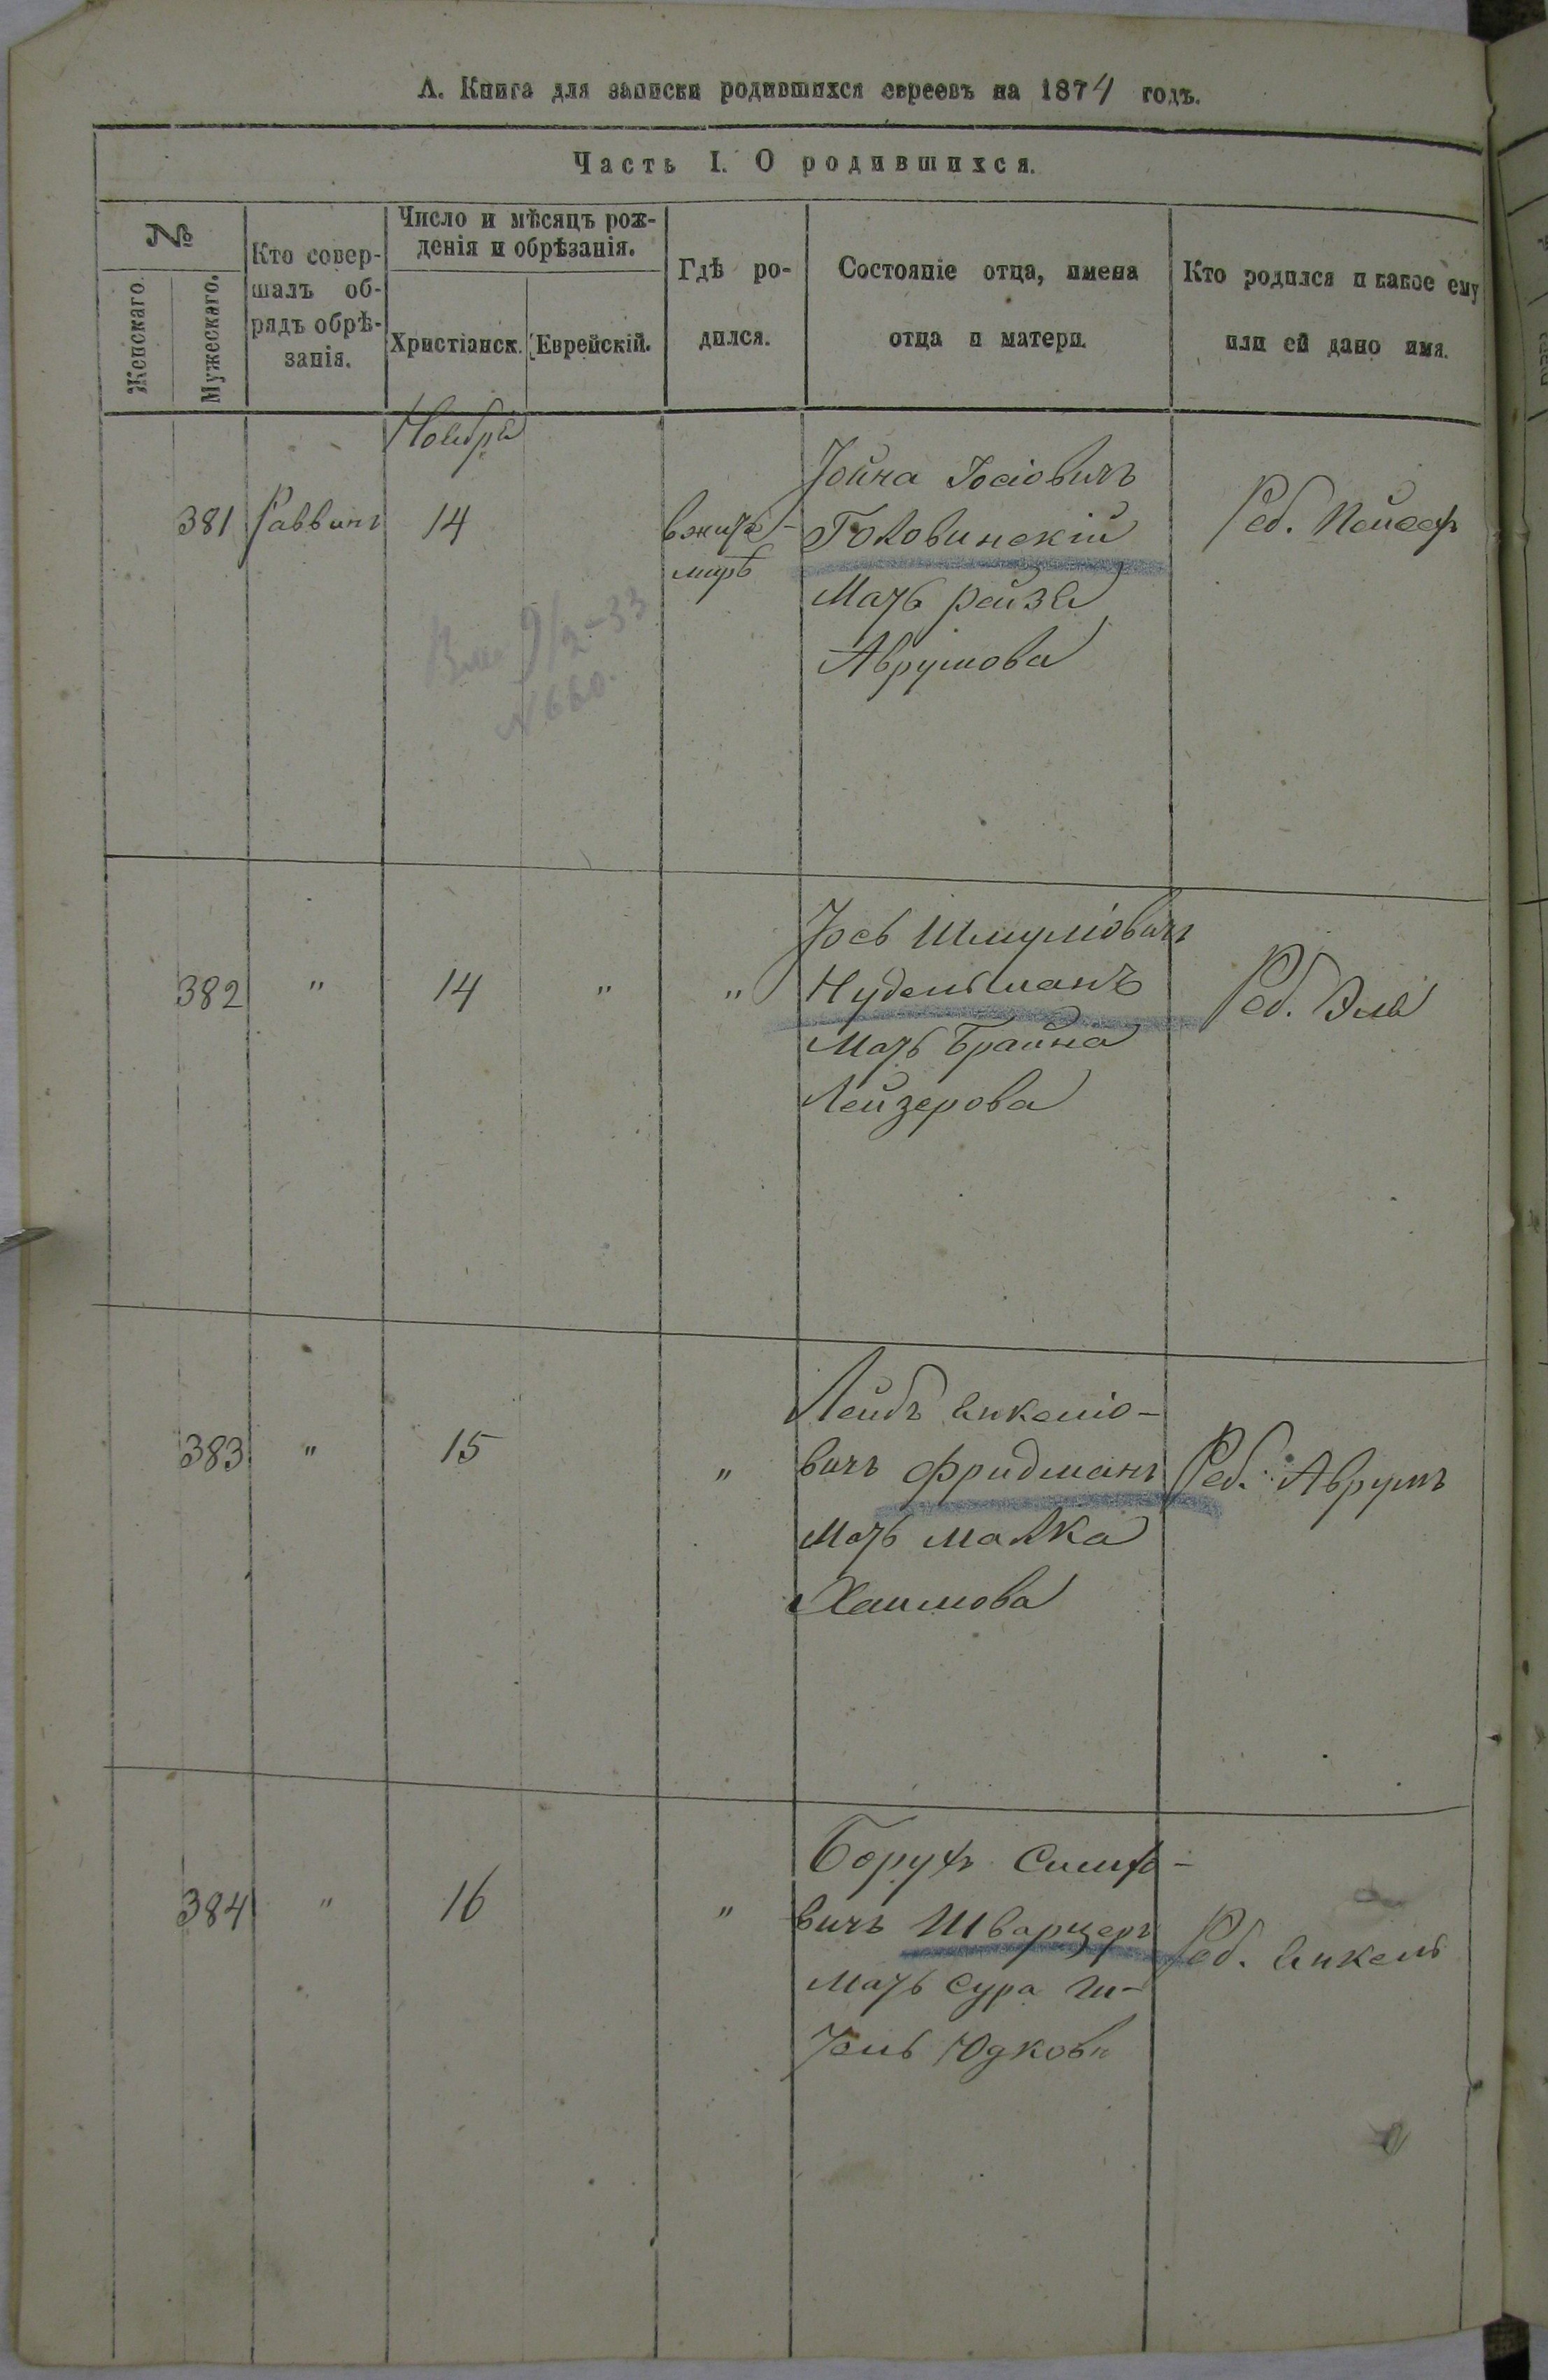 А. Книга для записки родившихся евреевъ на 1874 годъ.
Часть I. О родившихся.
№
Женскаго.
Мужескаго.
Кто совер-
шалъ об-
рядъ обрѣ-
занія.
Число и мѣсяцъ рож-
денія и обрѣзанія.
Христіанск.
Еврейскій.
Гдѣ ро-
дился.
Состояніе отца, имена
отца и матери.
Кто родился и какое ему
или ей дано имя.
Ноября
381
Раввинъ
14
в жито-
мирѣ
Іойна Іосіовичъ
Головинскій
Мать рейзя
Аврумова
Реб.
9/2-33
N 660.
382
"
14
"
"
Іось Шмуліовичъ
Нудельманъ
Мать Брайна
Лейзерова
Реб. Эля
383
"
15
"
Лейбъ Янкеліо-
вичъ Фридманъ
Мать малка
Хаимова
Реб. Аврумъ
384
"
16
"
Борухъ
вичъ Шварцеръ
Мать сура ги-
тель Юдкова
Реб. Янкель